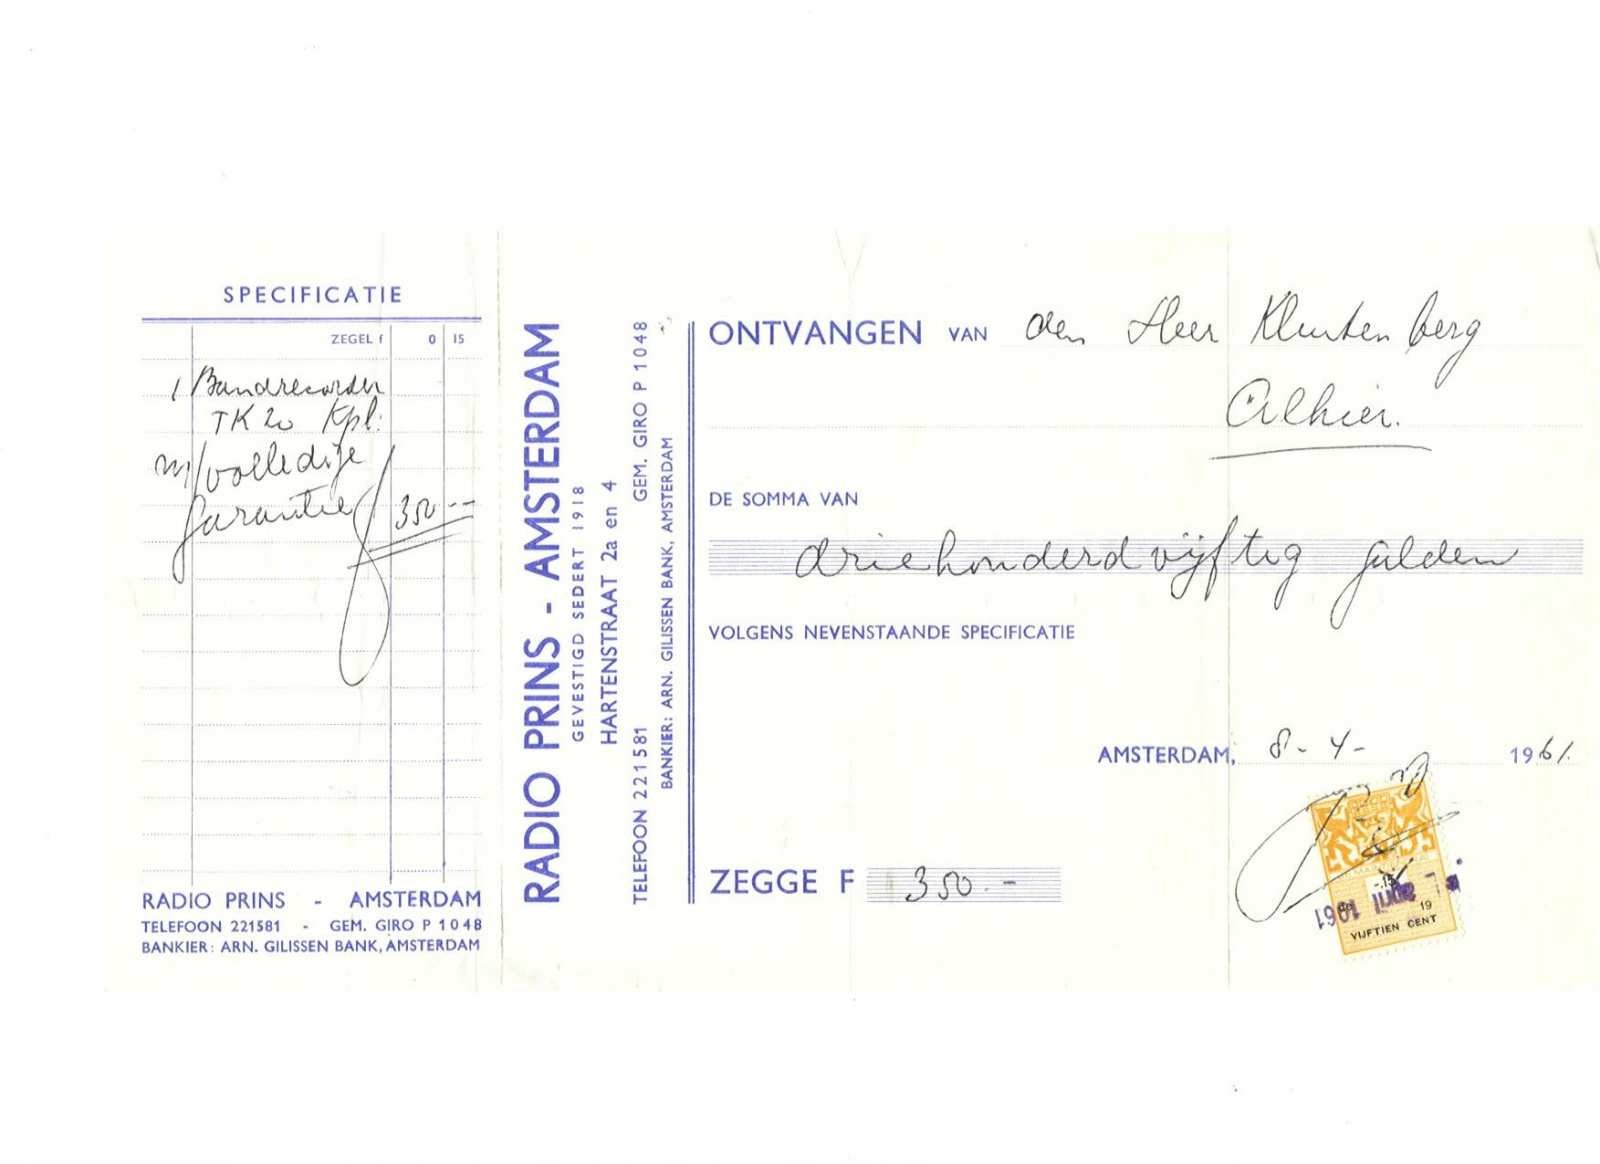 SPECIFICATIE
ZEGEL f 0 15
1 Bandrecorder
TK 20 Kpl.
m/volledige
garantie 350.--
RADIO PRINS - AMSTERDAM
TELEFOON 221581 - GEM. GIRO P 1048
BANKIER: ARN. GILISSEN BANK, AMSTERDAM
RADIO PRINS - AMSTERDAM
GEVESTIGD SEDERT 1918
HARTENSTRAAT 2a en 4
TELEFOON 221581 GEM. GIRO P 1048
BANKIER: ARN. GILISSEN BANK, AMSTERDAM
ONTVANGEN VAN den Heer
Alhier.
DE SOMMA VAN
driehonderdvijftig gulden
VOLGENS NEVENSTAANDE SPECIFICATIE
AMSTERDAM, 8-4- 1961.
ZEGGE F 350.-
-.15
19
VIJFTIEN CENT
april 1961